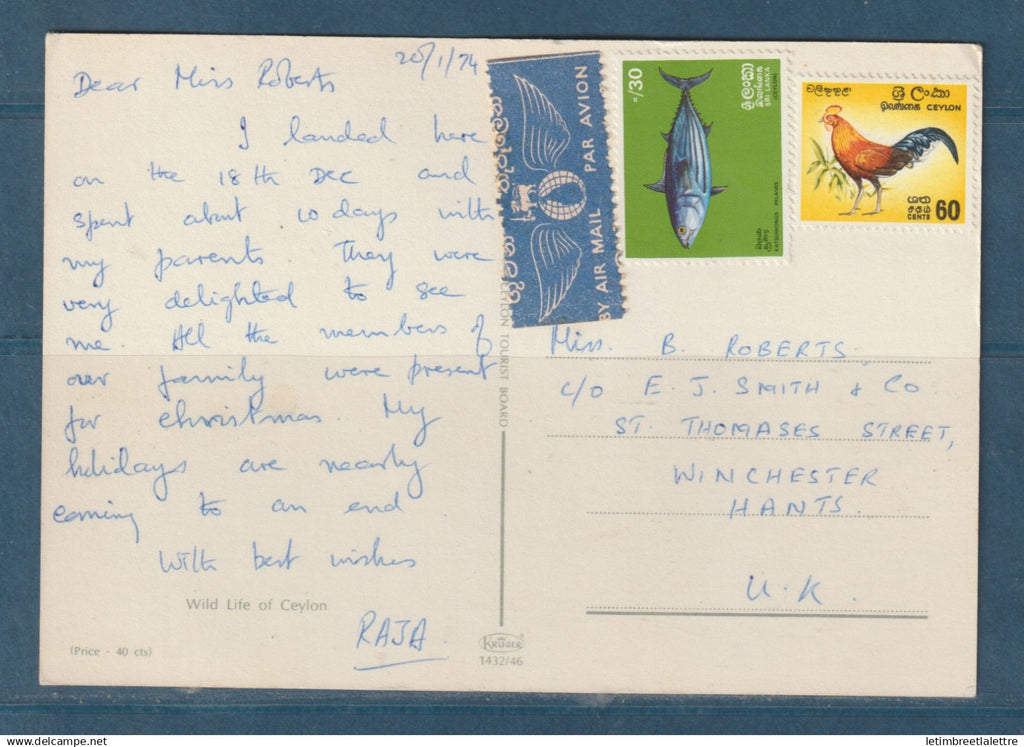 20/1/74
Dear Miss Roberts
I landed here
on the 18th DEC and
spent about 10 days with
my parents. They were
very delighted to see
me. All the members of
our family were present
for christmas. My
holidays are nearly
coming to an end.
With best wishes
RAJA.
Wild Life of Ceylon
(Price - 40 cts)
CEYLON TOURIST BOARD
KRÜGER
1432/46
BY AIR MAIL PAR AVION
-/30
ශ්‍රී ලංකා
இலங்கை
SRI LANKA
(CEYLON)
KATSUWONUS PELAMIS
ශ්‍රී ලංකා
இலங்கை CEYLON
සත
சதம்
CENTS 60
Miss. B. ROBERTS,
C/O E. J. SMITH & Co
ST. THOMASES STREET,
WINCHESTER
HANTS.
U.K
letimbreetlalettre
delcampe.net